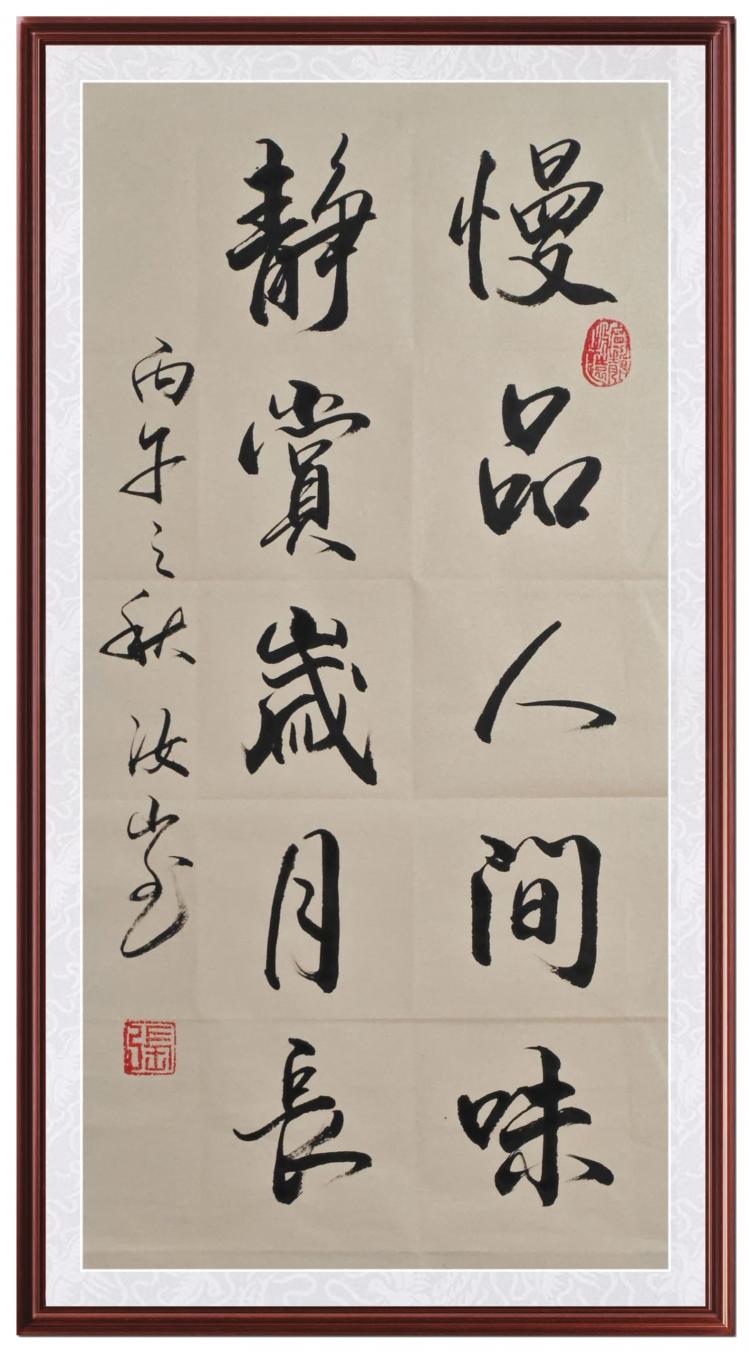 慢品人間味
靜賞歲月長
丙午之秋 汝
張